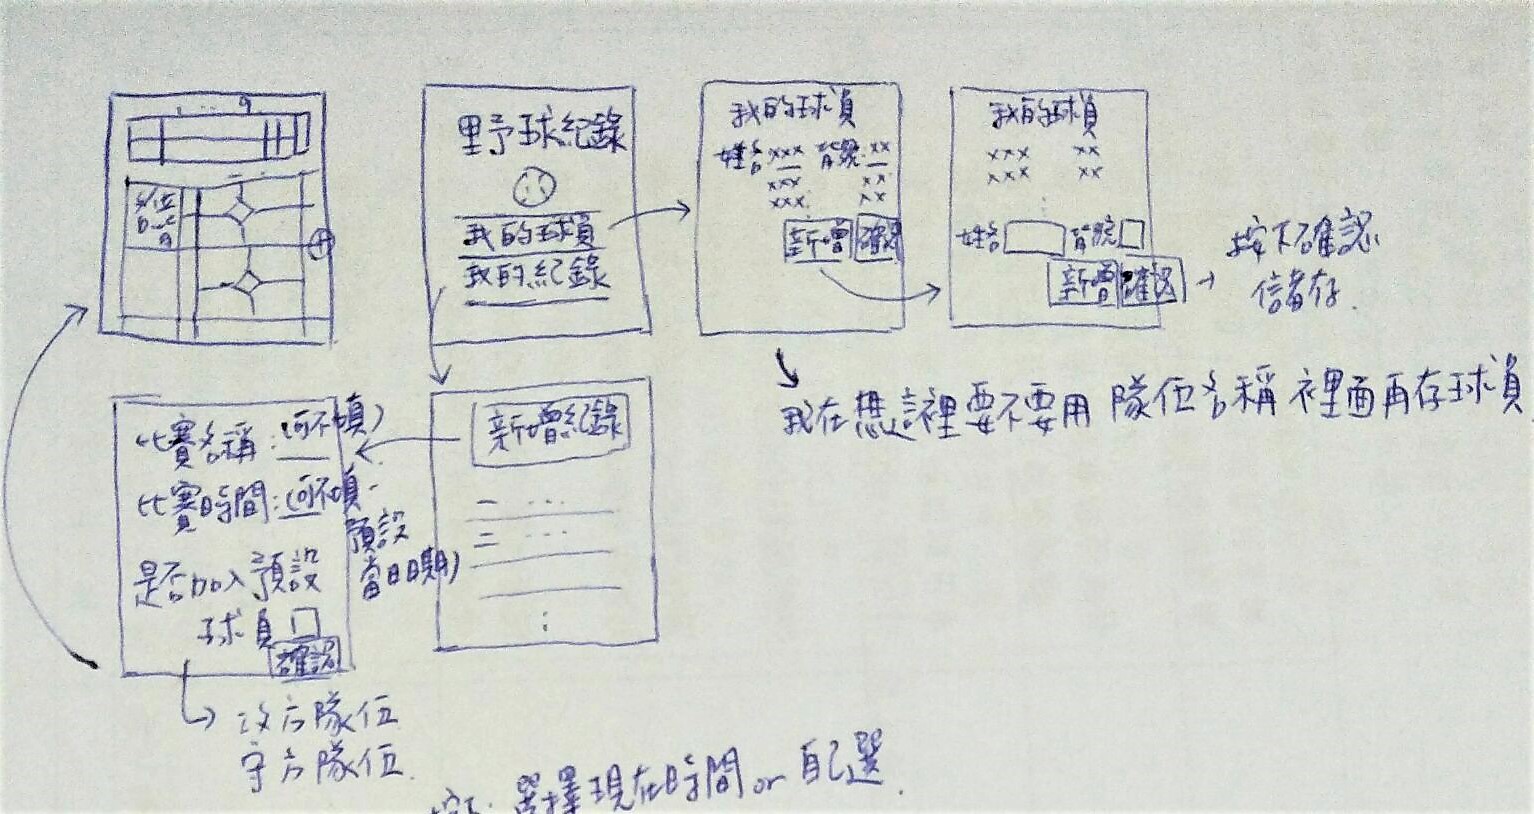 1 ... 9
野球紀錄
我的球員
我的紀錄
我的球員
姓名 xxx 背號: xx
xxx xx
xxx xx
新增 確認
我的球員
xxx xx
xxx xx
姓名 背號
新增 確認
按下確認
儲存.
我在想說裡要不要用 隊伍名稱 裡面再存球員
比賽名稱: (可不填)
比賽時間: (可不填.
預設
當日日期)
是否加入預設
球員
確認
攻方隊伍
守方隊伍.
新增紀錄
一 ...
二 ...
選擇現在時間 or 自己選.